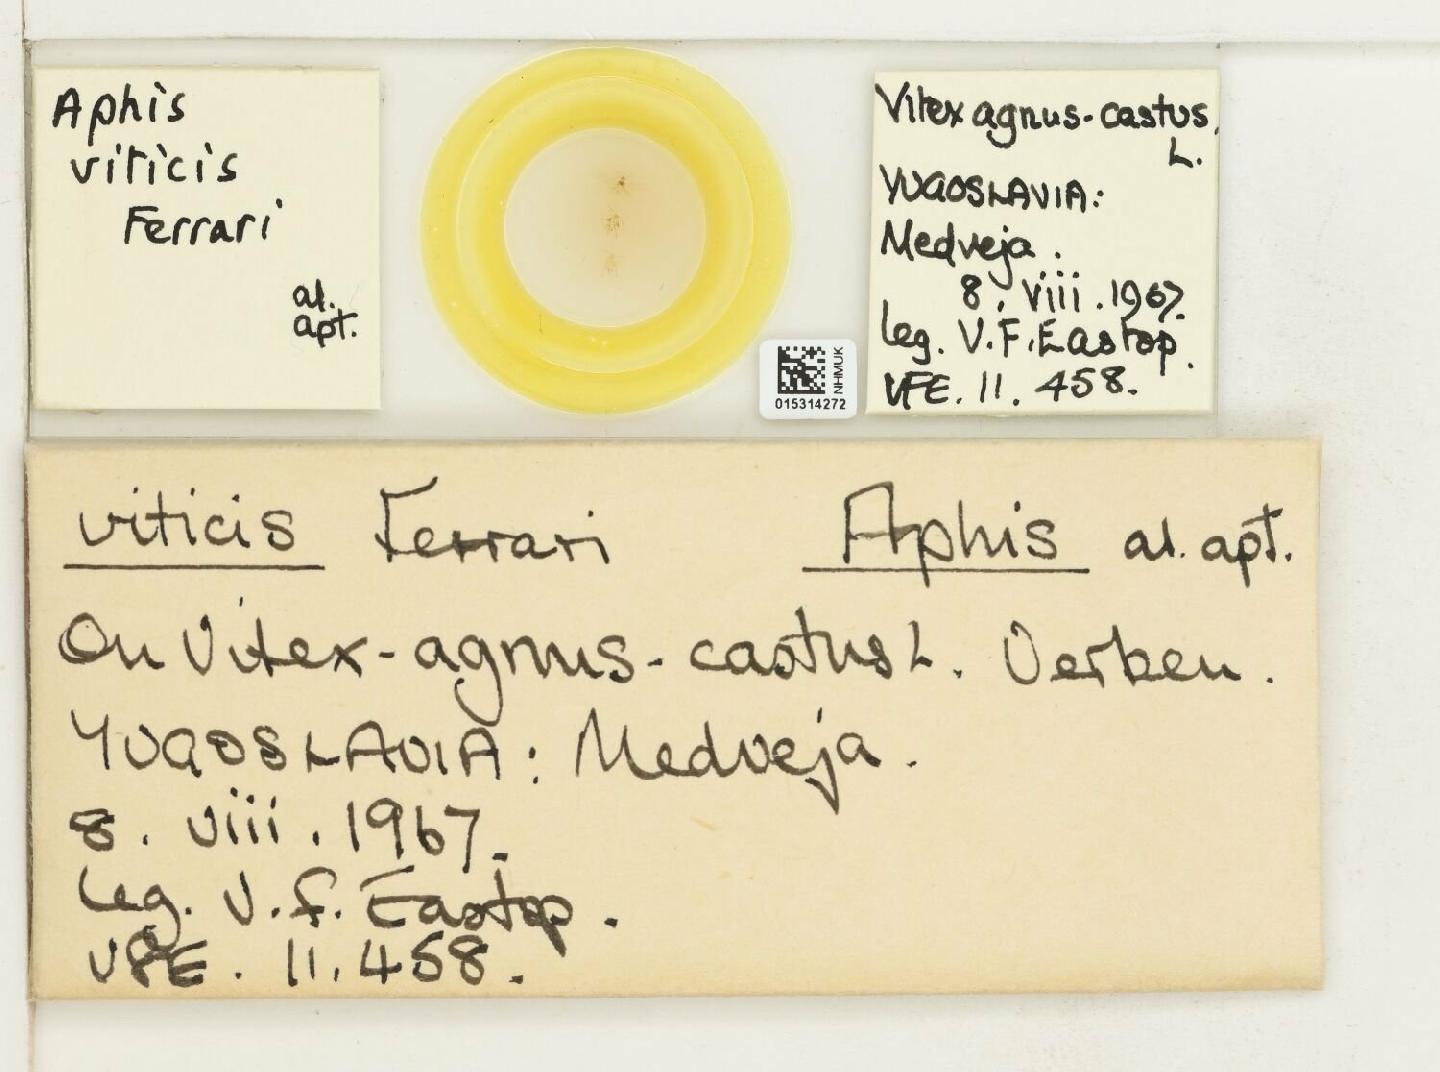 Aphis
viticis
Ferrari
al.
apt.
NHMUK
015314272
Vitex agnus-castus,
L.
YUGOSLAVIA:
Medveja.
8. viii. 1967.
leg. V.F. Eastop.
VFE. 11. 458.
viticis Ferrari Aphis al. apt.
On Vitex-agnus-castus L. Verben.
YUGOSLAVIA: Medveja.
8. viii. 1967.
leg. V.F. Eastop.
VFE. 11. 458.